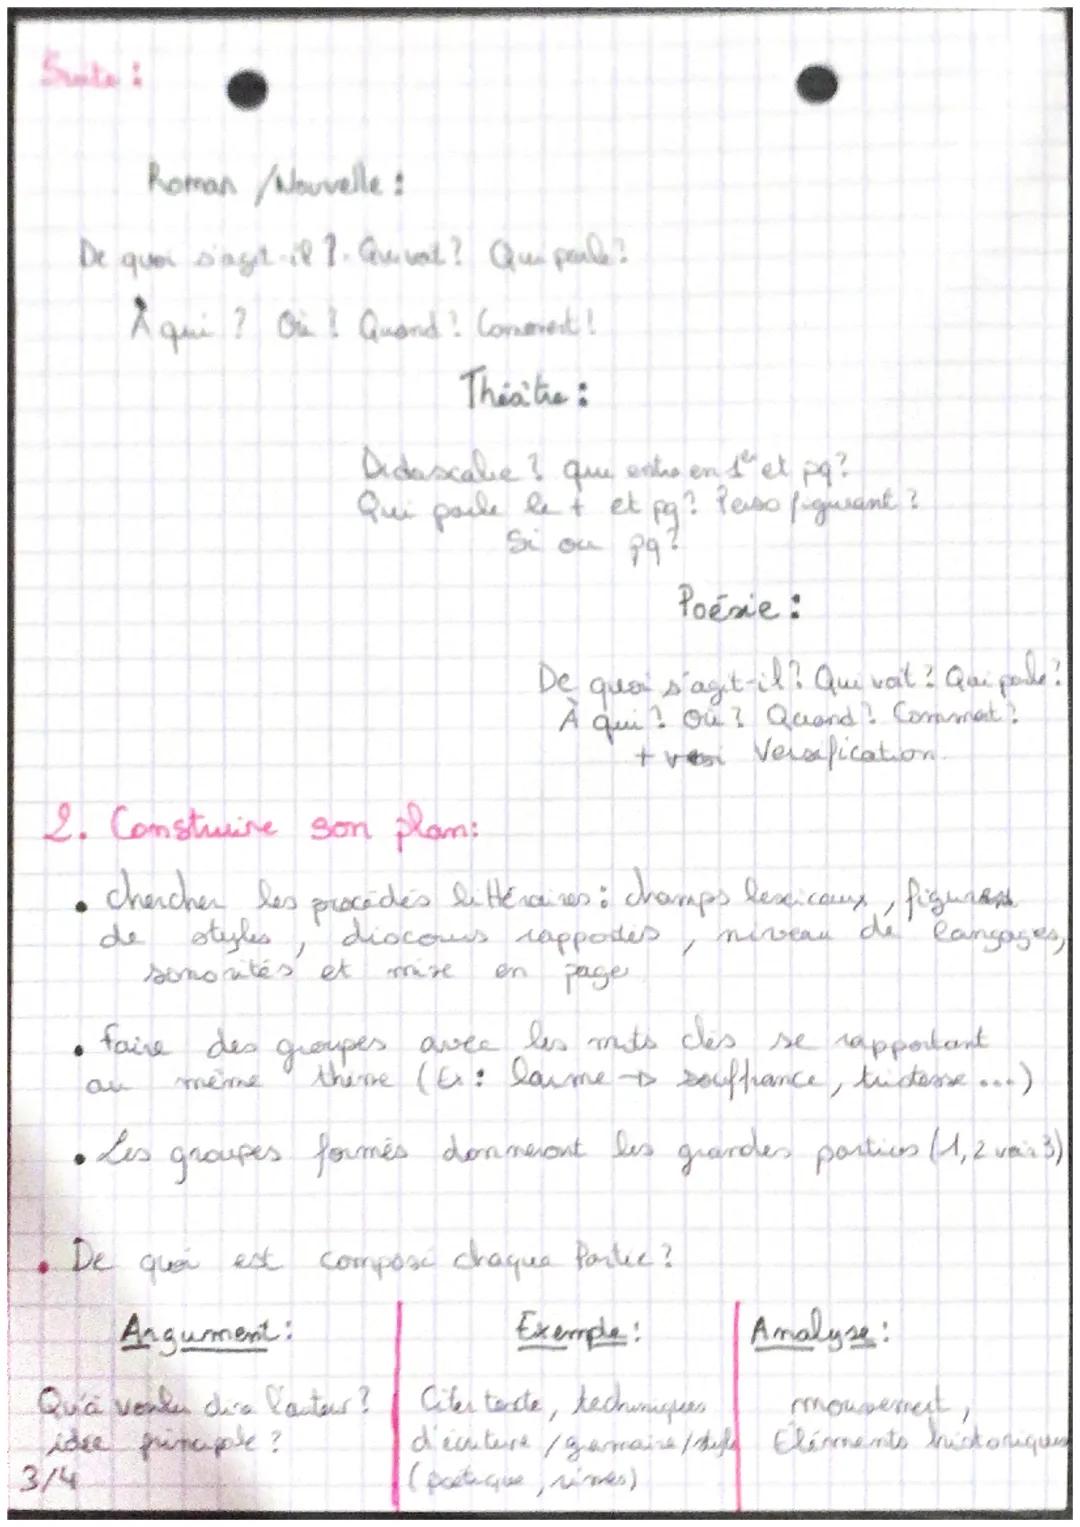 Suite :
Roman / Nouvelle :
De quoi s'agit-il ? Qui voit ? Qui parle ?
À qui ? Où ? Quand ? Comment ?
Théâtre :
Didascalie ? qui entre en 1er et pq ?
Qui parle le + et pq ? Perso figurant ?
Si oui pq ?
Poésie :
De quoi s'agit-il ? Qui voit ? Qui parle ?
À qui ? Où ? Quand ? Comment ?
+ Versification
2. Construire son plan :
• chercher les procédés littéraires : champs lexicaux, figures
de styles, discours rapportés, niveau de langages,
sonorités et mise en page
• faire des groupes avec les mots clés se rapportant
au même thème (Ex : larme → souffrance, tristesse ...)
• Les groupes formés donneront les grandes parties (1, 2 voir 3)
• De quoi est composé chaque Partie ?
Argument : Exemple : Analyse :
Qu'a voulu dire l'auteur ? Citer texte, techniques mouvement,
idée principale ? d'écriture / gramaire / style Eléments historiques
3/4 (poétique, rimes)